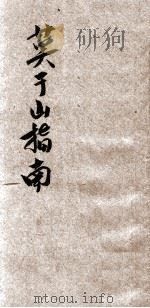 莫干山指南
mtoou.info